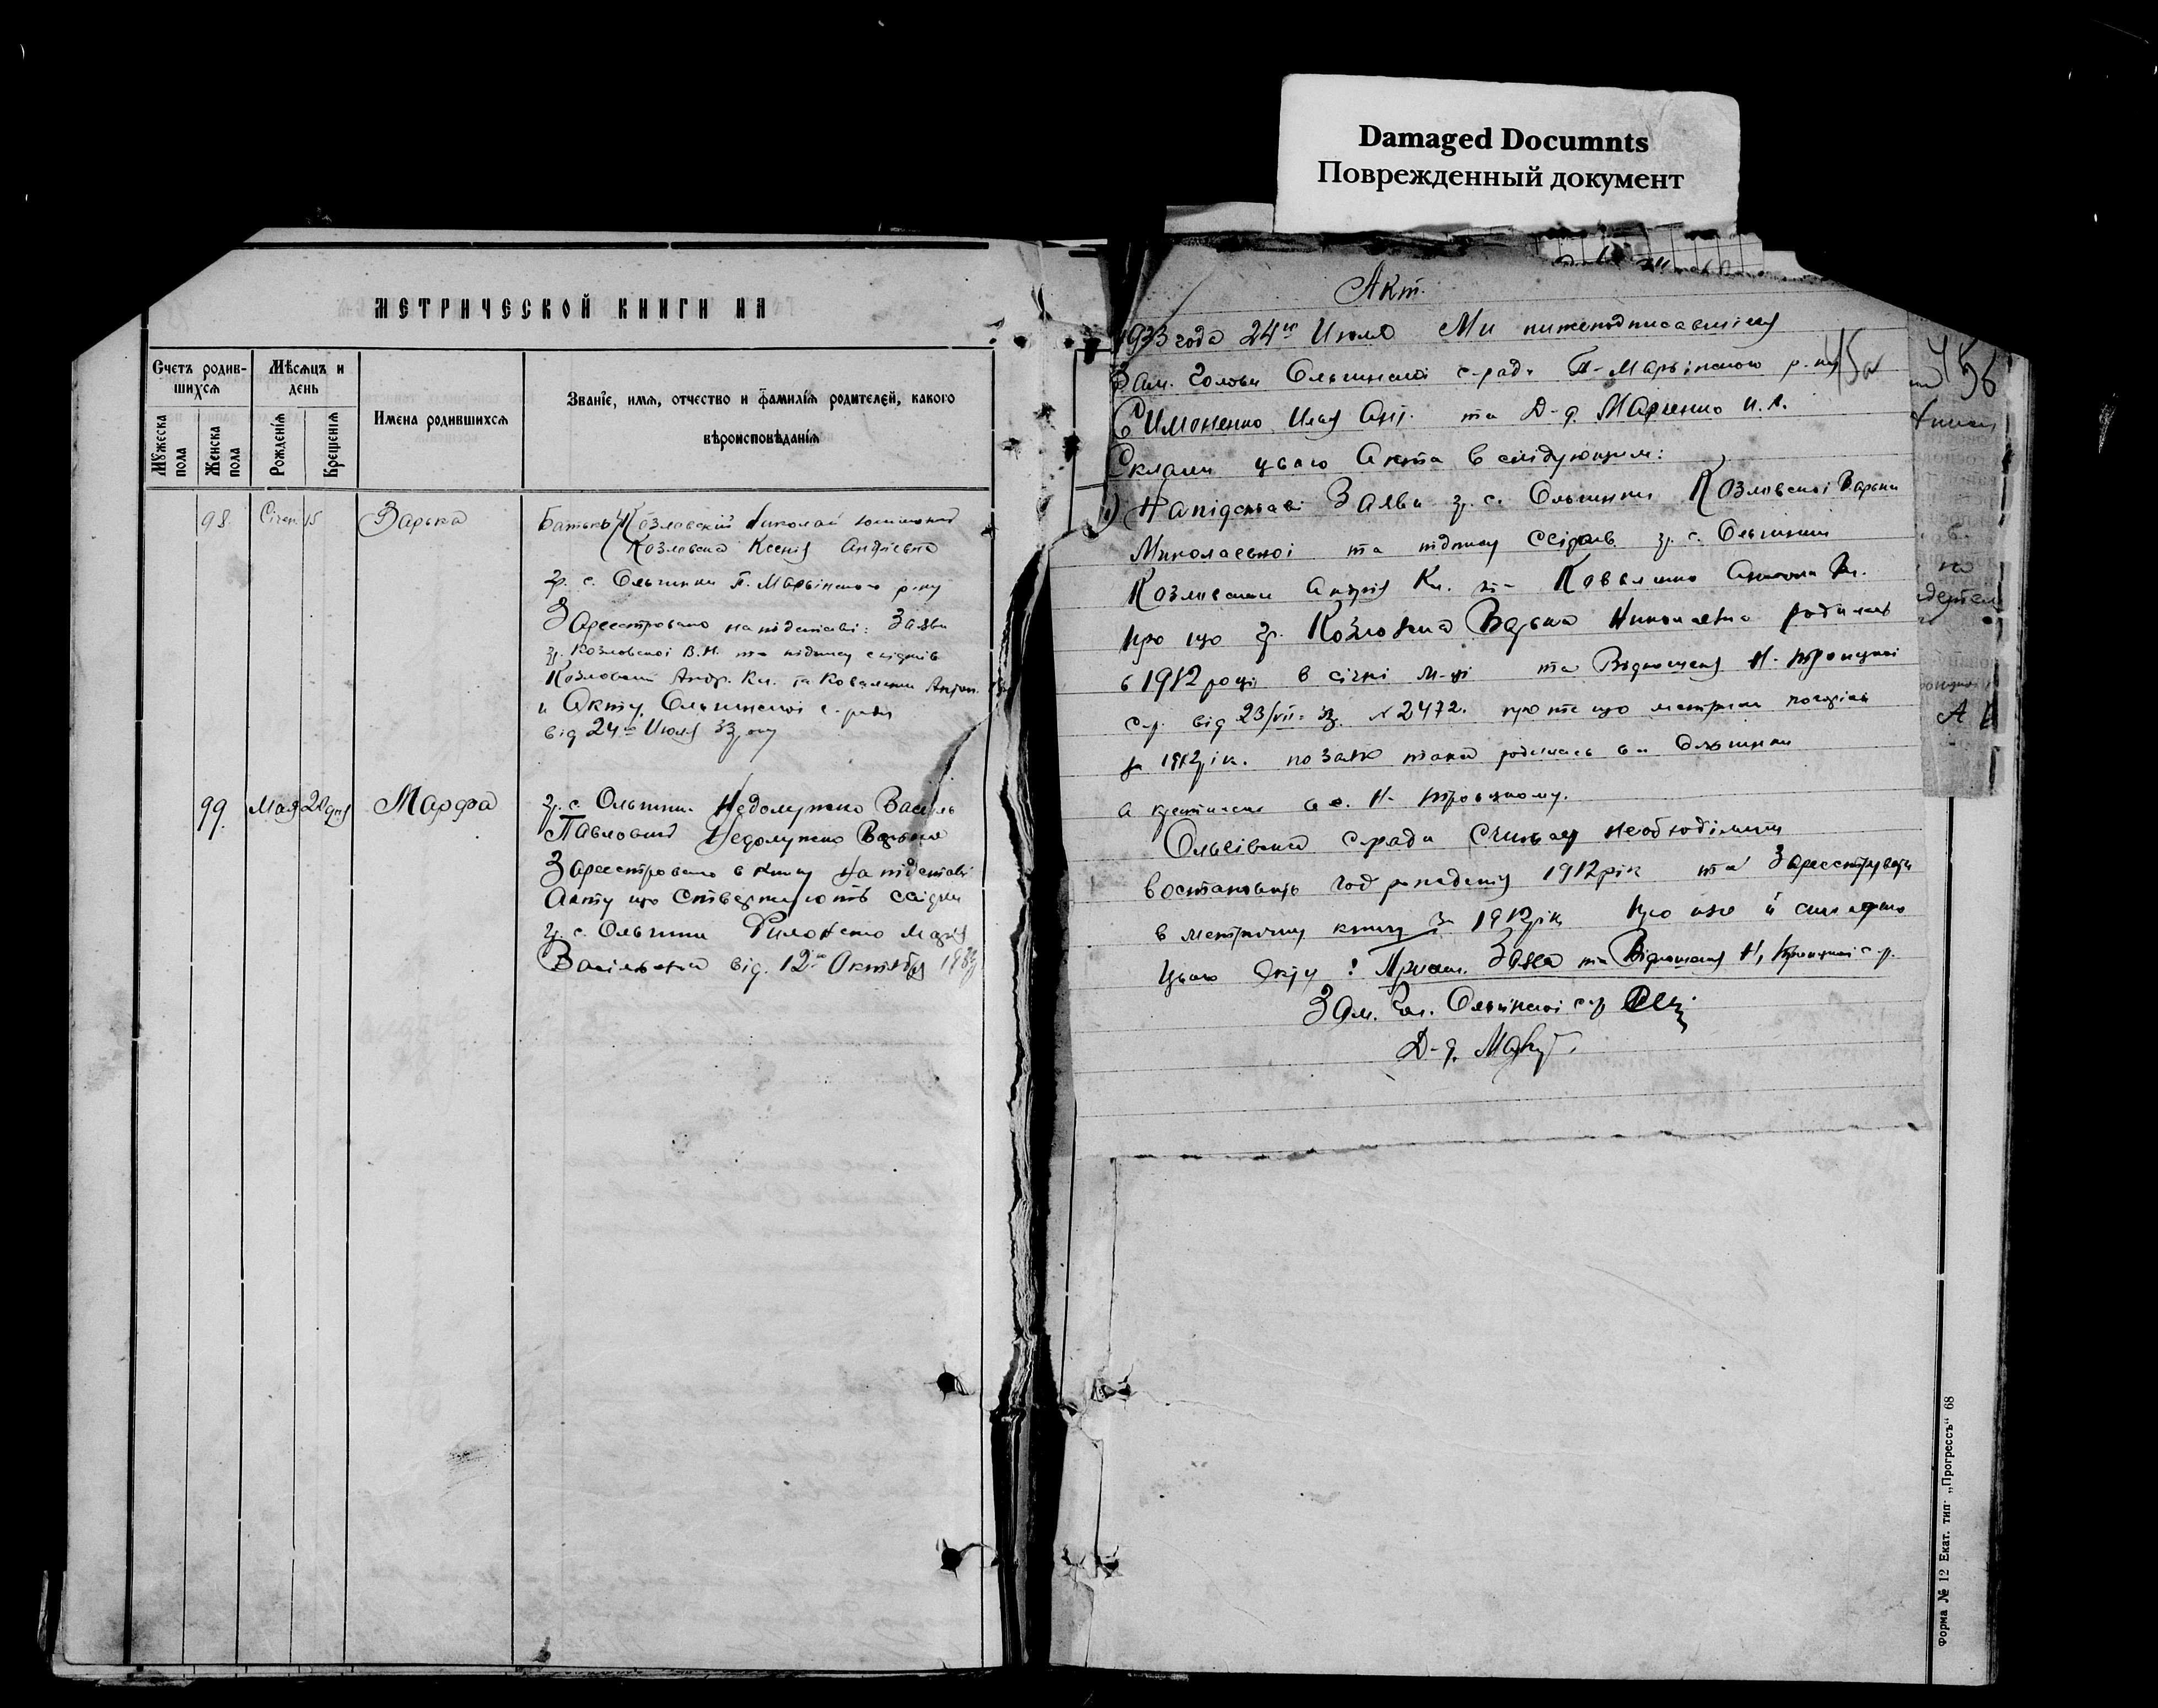 Damaged Documnts
Поврежденный документ
МЕТРИЧЕСКОЙ КНИГИ НА
Счетъ родившихся
Мѣсяцъ и день
Имена родившихся
Званіе, имя, отчество и фамилія родителей, какого вѣроисповѣданія
Мужеска пола
Женска пола
Рожденія
Крещенія
98 Січен 15 Варька
Батьки Козловский Николай
Козловска Ксенія Андріевна
гр. с. Ольгинки П. Марьінского р-ну
Зареестровано на підставі: Заяви
гр. Козловскої В.Н. та підпису свідків
Козловский Андр. Кл. та Коваленко Антон.
и Акту Ольгинскої с. ради
від 24го Июля 33 року
99. Мая 22 дня Марфа
гр. с. Ольгинк. Недолужко Василь
Павлович Недолужко Варька
Зареестровано в книгу на підставі
Акту що ствержують свідки
гр. с. Ольгинк
Васільевна від. 12го Октября
Акт.
1933 года 24го Июля Ми нижеподписавшіеся
Зам. Голови Ольгинскої с-ради П-Марьінского р-ну
Симоненко Илля Анд. та Д-д. Марченко И. А.
Склали цього Акта в слідующем:
1) На підставі Заяви гр. с. Ольгинки Козловскої Варьки
Миколаевної та підпису свідків гр. с. Ольгинки
Козловский Андрій Кл. та Коваленко Антон
про що гр. Козловска Варька Николаевна родилась
в 1912 році в січні м-ці та Відношенія Н-Троицкої
с.р. від 23/VII-33. № 2472. про те що метрики
за 1912 рік. така родилась в с. Ольгинки
а крестилась в с. Н-Троицкому.
Ольгінска с-рада считает необходімим
востановить год рожденія 1912 рік та Зарееструвать
в метричну книгу за 1912 рік Про що й складено
цього Акту! Прилаг. Заява та Відношенія Н, Троицкої с.р.
Зам. Гол. Ольгінскої с.р.
Д-д.
45а
Форма № 12 Екат. тип. „Прогрессъ“ 68